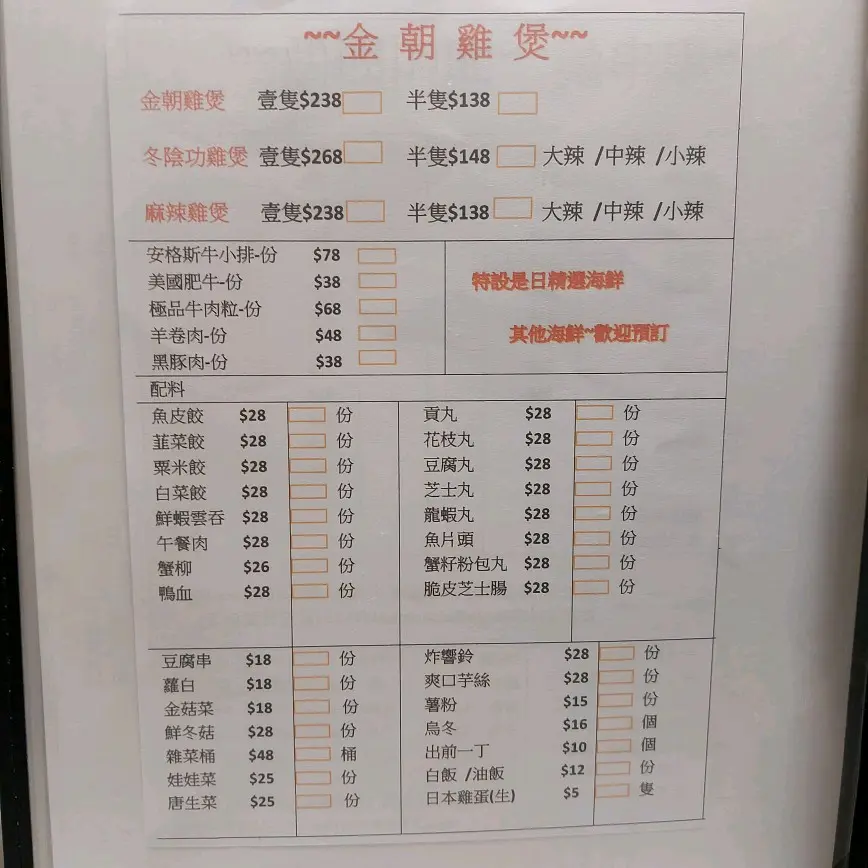 ~~金朝雞煲~~
金朝雞煲 壹隻$238 半隻$138
冬陰功雞煲 壹隻$268 半隻$148 大辣 /中辣 /小辣
麻辣雞煲 壹隻$238 半隻$138 大辣 /中辣 /小辣
安格斯牛小排-份 $78
美國肥牛-份 $38
極品牛肉粒-份 $68
羊卷肉-份 $48
黑豚肉-份 $38
特設是日精選海鮮
其他海鮮~歡迎預訂
配料
魚皮餃 $28 份
韮菜餃 $28 份
粟米餃 $28 份
白菜餃 $28 份
鮮蝦雲吞 $28 份
午餐肉 $28 份
蟹柳 $26 份
鴨血 $28 份
貢丸 $28 份
花枝丸 $28 份
豆腐丸 $28 份
芝士丸 $28 份
龍蝦丸 $28 份
魚片頭 $28 份
蟹籽粉包丸 $28 份
脆皮芝士腸 $28 份
豆腐串 $18 份
蘿白 $18 份
金菇菜 $18 份
鮮冬菇 $28 份
雜菜桶 $48 桶
娃娃菜 $25 份
唐生菜 $25 份
炸響鈴 $28 份
爽口芋絲 $28 份
薯粉 $15 份
烏冬 $16 個
出前一丁 $10 個
白飯 /油飯 $12 份
日本雞蛋(生) $5 隻